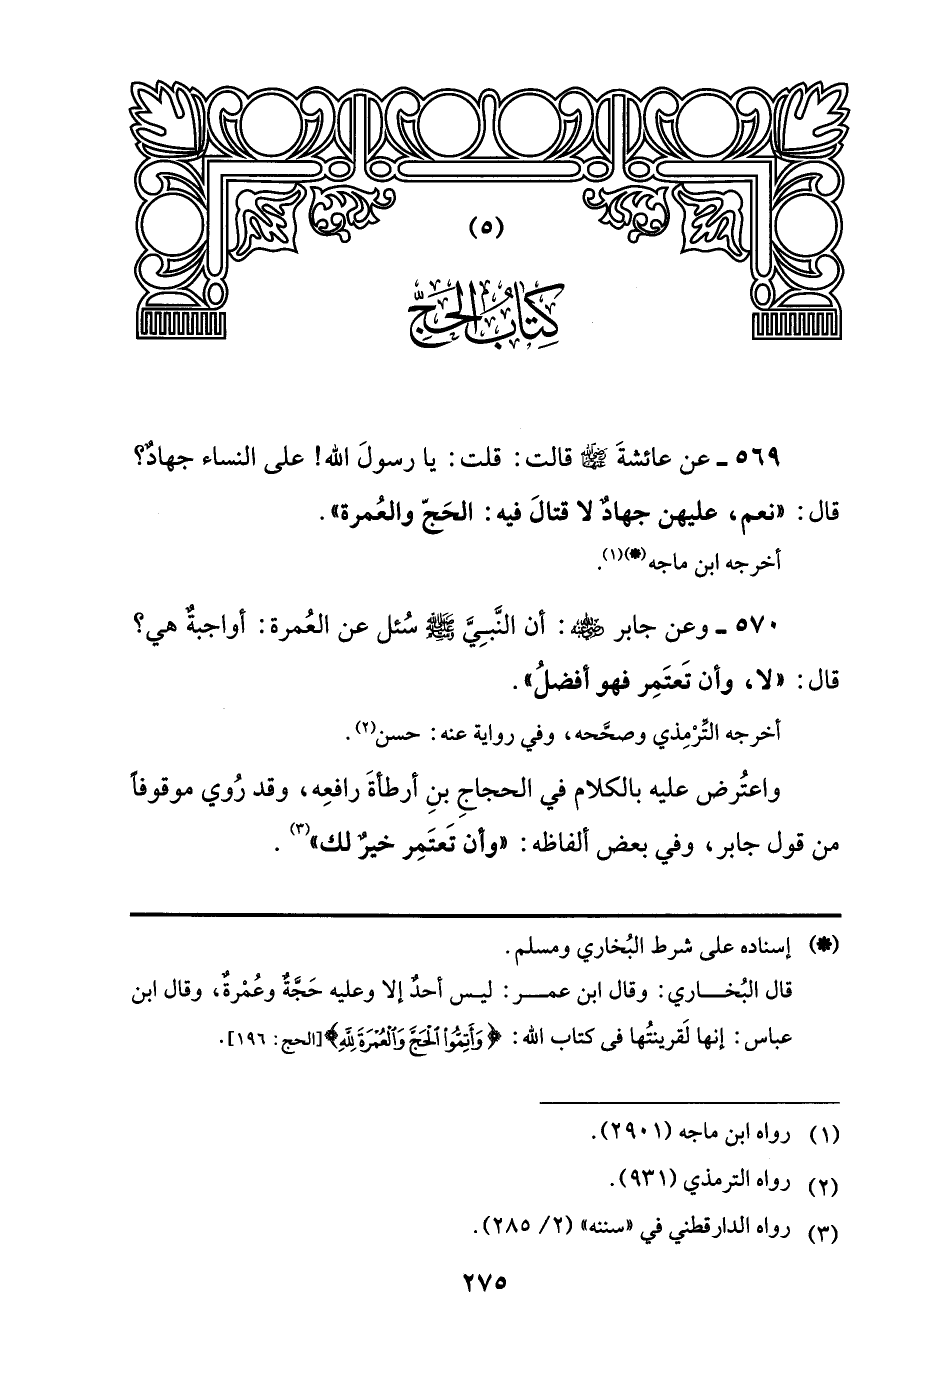 (٥)
كِتَابُ الحَجِّ
٥٦٩ ـ عن عائشةَ ﷺ قالت: قلت: يا رسولَ الله! على النساء جهادٌ؟
قال: «نعم، عليهن جهادٌ لا قتالَ فيه: الحَجّ والعُمرة».
أخرجه ابن ماجه(*)(١).
٥٧٠ ـ وعن جابر رضي الله عنه: أن النَّبِيَّ ﷺ سُئل عن العُمرة: أواجبةٌ هي؟
قال: «لا، وأن تَعتَمِر فهو أفضلُ».
أخرجه التِّرْمِذي وصحَّحه، وفي رواية عنه: حسن(٢).
واعتُرض عليه بالكلام في الحجاجِ بنِ أرطأةَ رافعِه، وقد رُوي موقوفاً
من قول جابر، وفي بعض ألفاظه: «وأن تَعتَمِر خيرٌ لك»(٣).
(*) إسناده على شرط البُخاري ومسلم.
قال البُخــاري: وقال ابن عمــر: ليـس أحدٌ إلا وعليه حَجَّةٌ وعُمْرةٌ، وقال ابن
عباس: إنها لَقرينتُها فى كتاب الله: ﴿وَأَتِمُّوا۟ ٱلْحَجَّ وَٱلْعُمْرَةَ لِلَّهِ﴾[الحج: ١٩٦].
(١) رواه ابن ماجه (٢٩٠١).
(٢) رواه الترمذي (٩٣١).
(٣) رواه الدارقطني في «سننه» (٢/ ٢٨٥).
٢٧٥